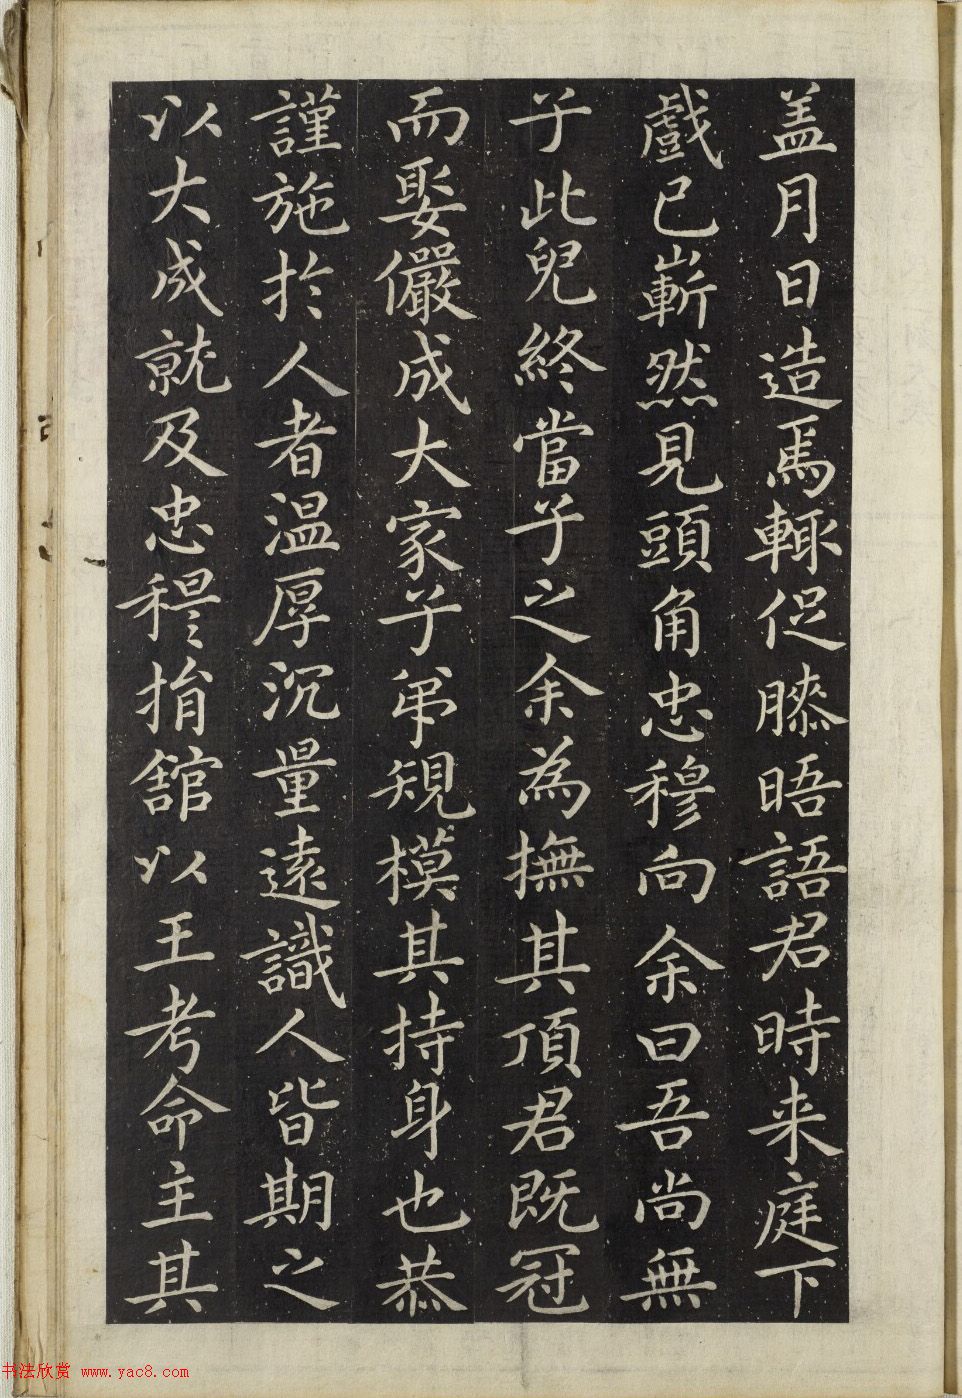 盖月日造焉輙促膝晤語君時来庭下
戲已嶄然見頭角忠穆向余曰吾尚無
子此兒終當子之余為撫其頂君既冠
而娶儼成大家子弟規模其持身也恭
謹施於人者温厚沉量遠識人皆期之
以大成就及忠穆捐舘以王考命主其
书法欣赏 www.yac8.com